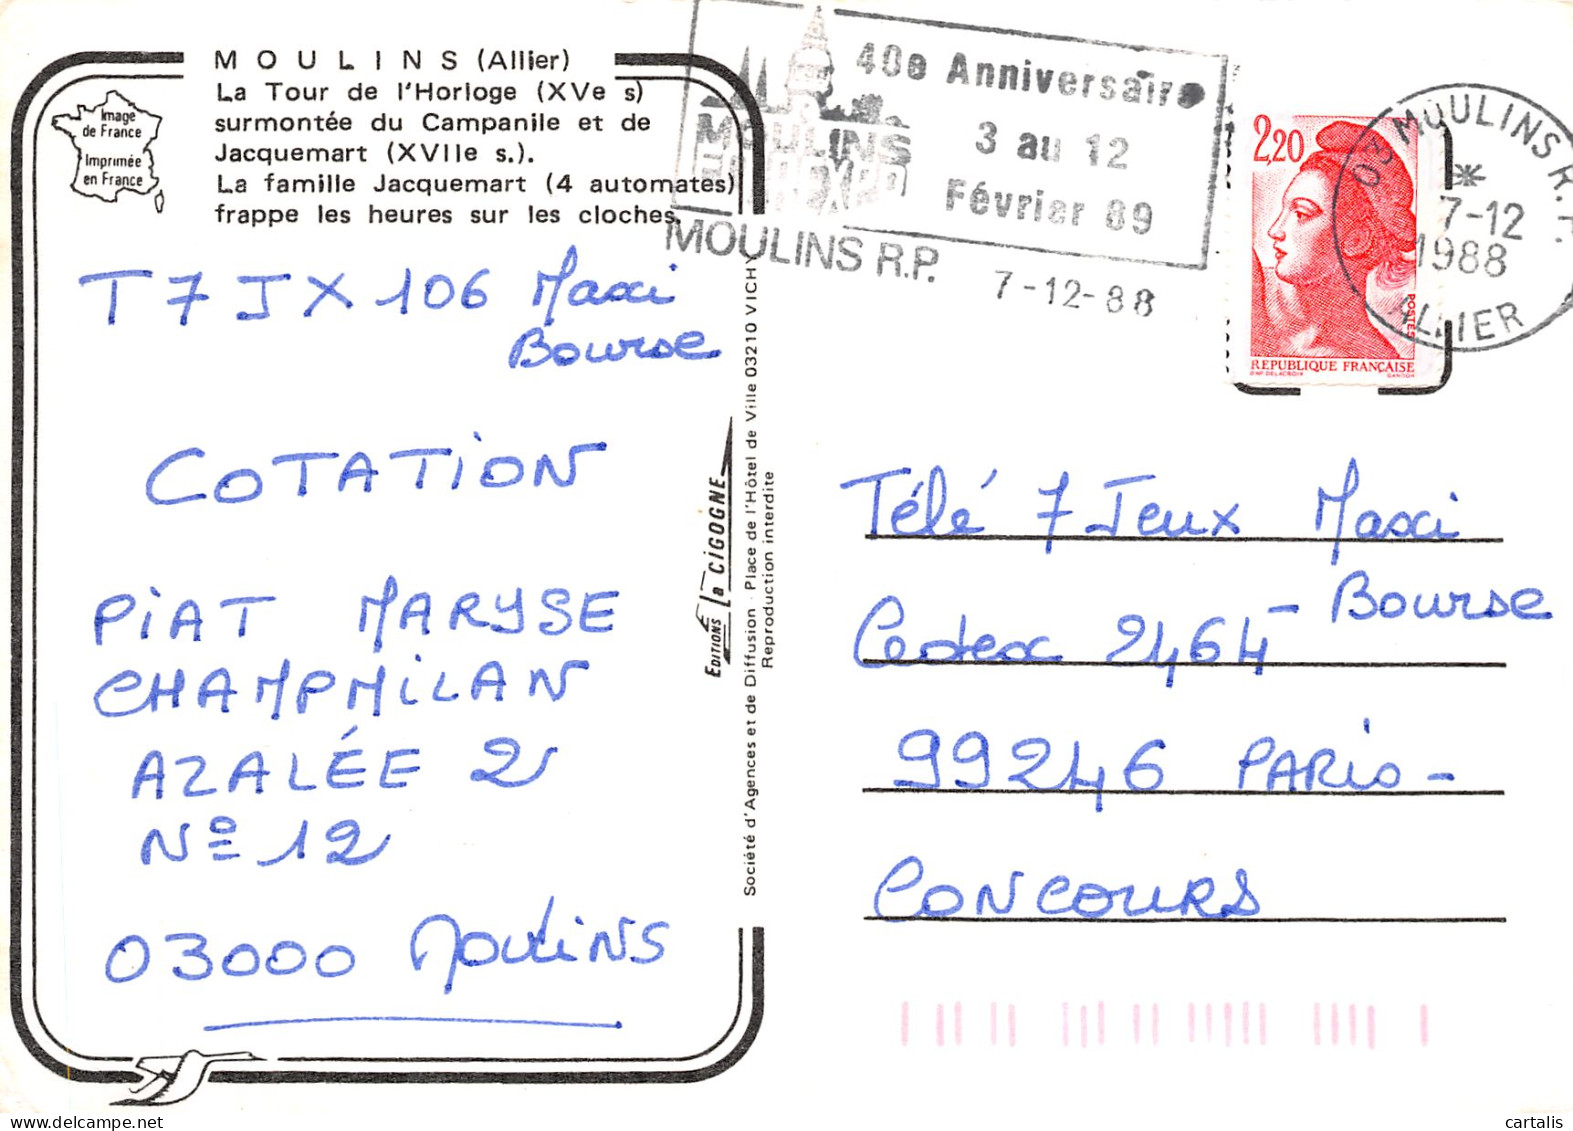 MOULINS (Allier)
La Tour de l'Horloge (XVe s)
surmontée du Campanile et de
Jacquemart (XVIIe s.).
La famille Jacquemart (4 automates)
frappe les heures sur les cloches.
Image
de France
Imprimée
en France
T 7 J X 106 Maxi
Bourse
COTATION
PIAT MARYSE
CHAMPMILAN
AZALÉE 2
Nº 12
03000 Moulins
EDITIONS la CIGOGNE
Société d'Agences et de Diffusion - Place de l'Hôtel de Ville 03210 VICHY
Reproduction interdite
MOULINS
40e Anniversaire
3 au 12
Février 89
MOULINS R.P. 7-12-88
2,20
POSTES
REPUBLIQUE FRANÇAISE
D'AP. DELACROIX GANDON
03 MOULINS R.P.
7-12
1988
ALLIER
Télé 7 Jeux Maxi
Bourse
Cedex 2464 -
99246 PARIS -
CONCOURS
cartalis